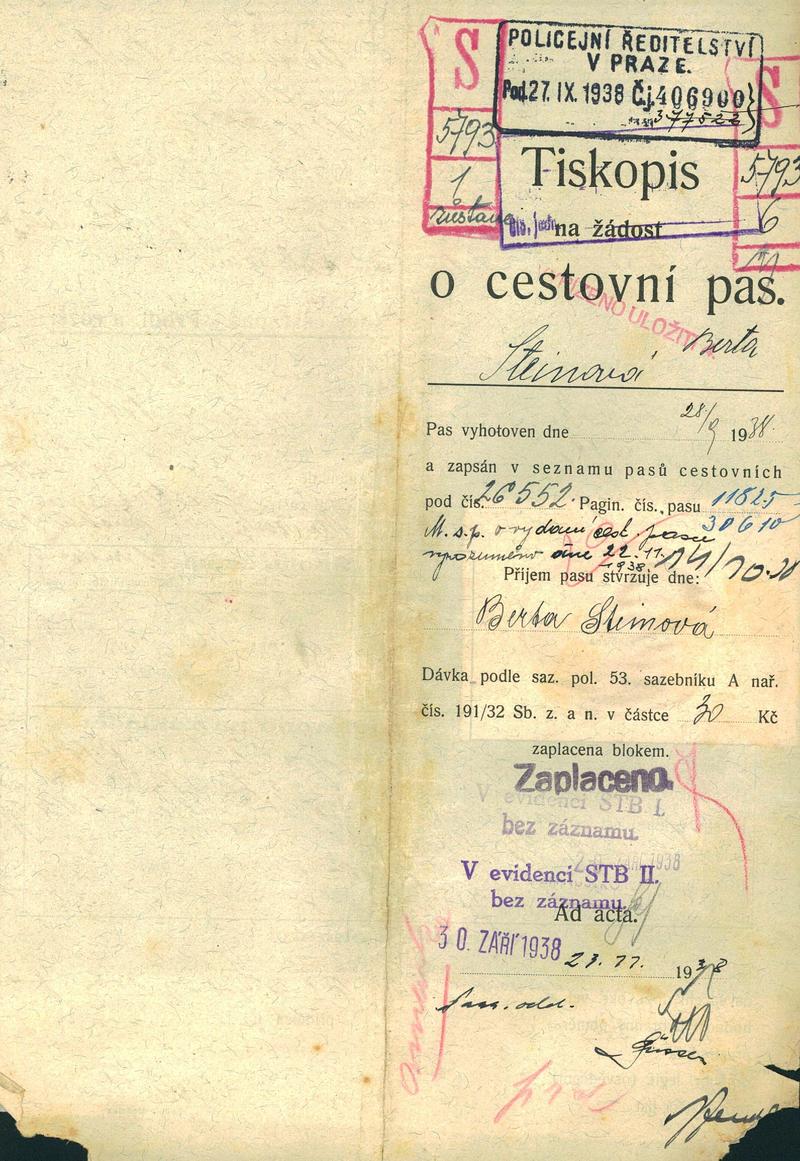 S
POLICEJNÍ ŘEDITELSTVÍ
V PRAZE.
Pod. 27. IX. 1938 Čj. 406900
377522
S
5793
1
zustane
5793
6
Tiskopis
na žádost
o cestovní pas.
ULOŽITI
Berta
Steinová
Pas vyhotoven dne 28/9 1938.
a zapsán v seznamu pasů cestovních
pod čís. 26552. Pagin. čís. pasu 11825
30610
M.s.p. o vydání cest. pasu
vyrozuměno dne 22.11.
1938
14/10.38
Příjem pasu stvrzuje dne:
Berta Steinová
Dávka podle saz. pol. 53. sazebníku A nař.
čís. 191/32 Sb. z. a n. v částce 30 Kč
zaplacena blokem.
Zaplaceno.
V evidenci STB I.
bez záznamu.
ZÁŘÍ 1938
V evidenci STB II.
bez záznamu.
Ad acta.
30. ZÁŘÍ 1938
23. 11. 1938